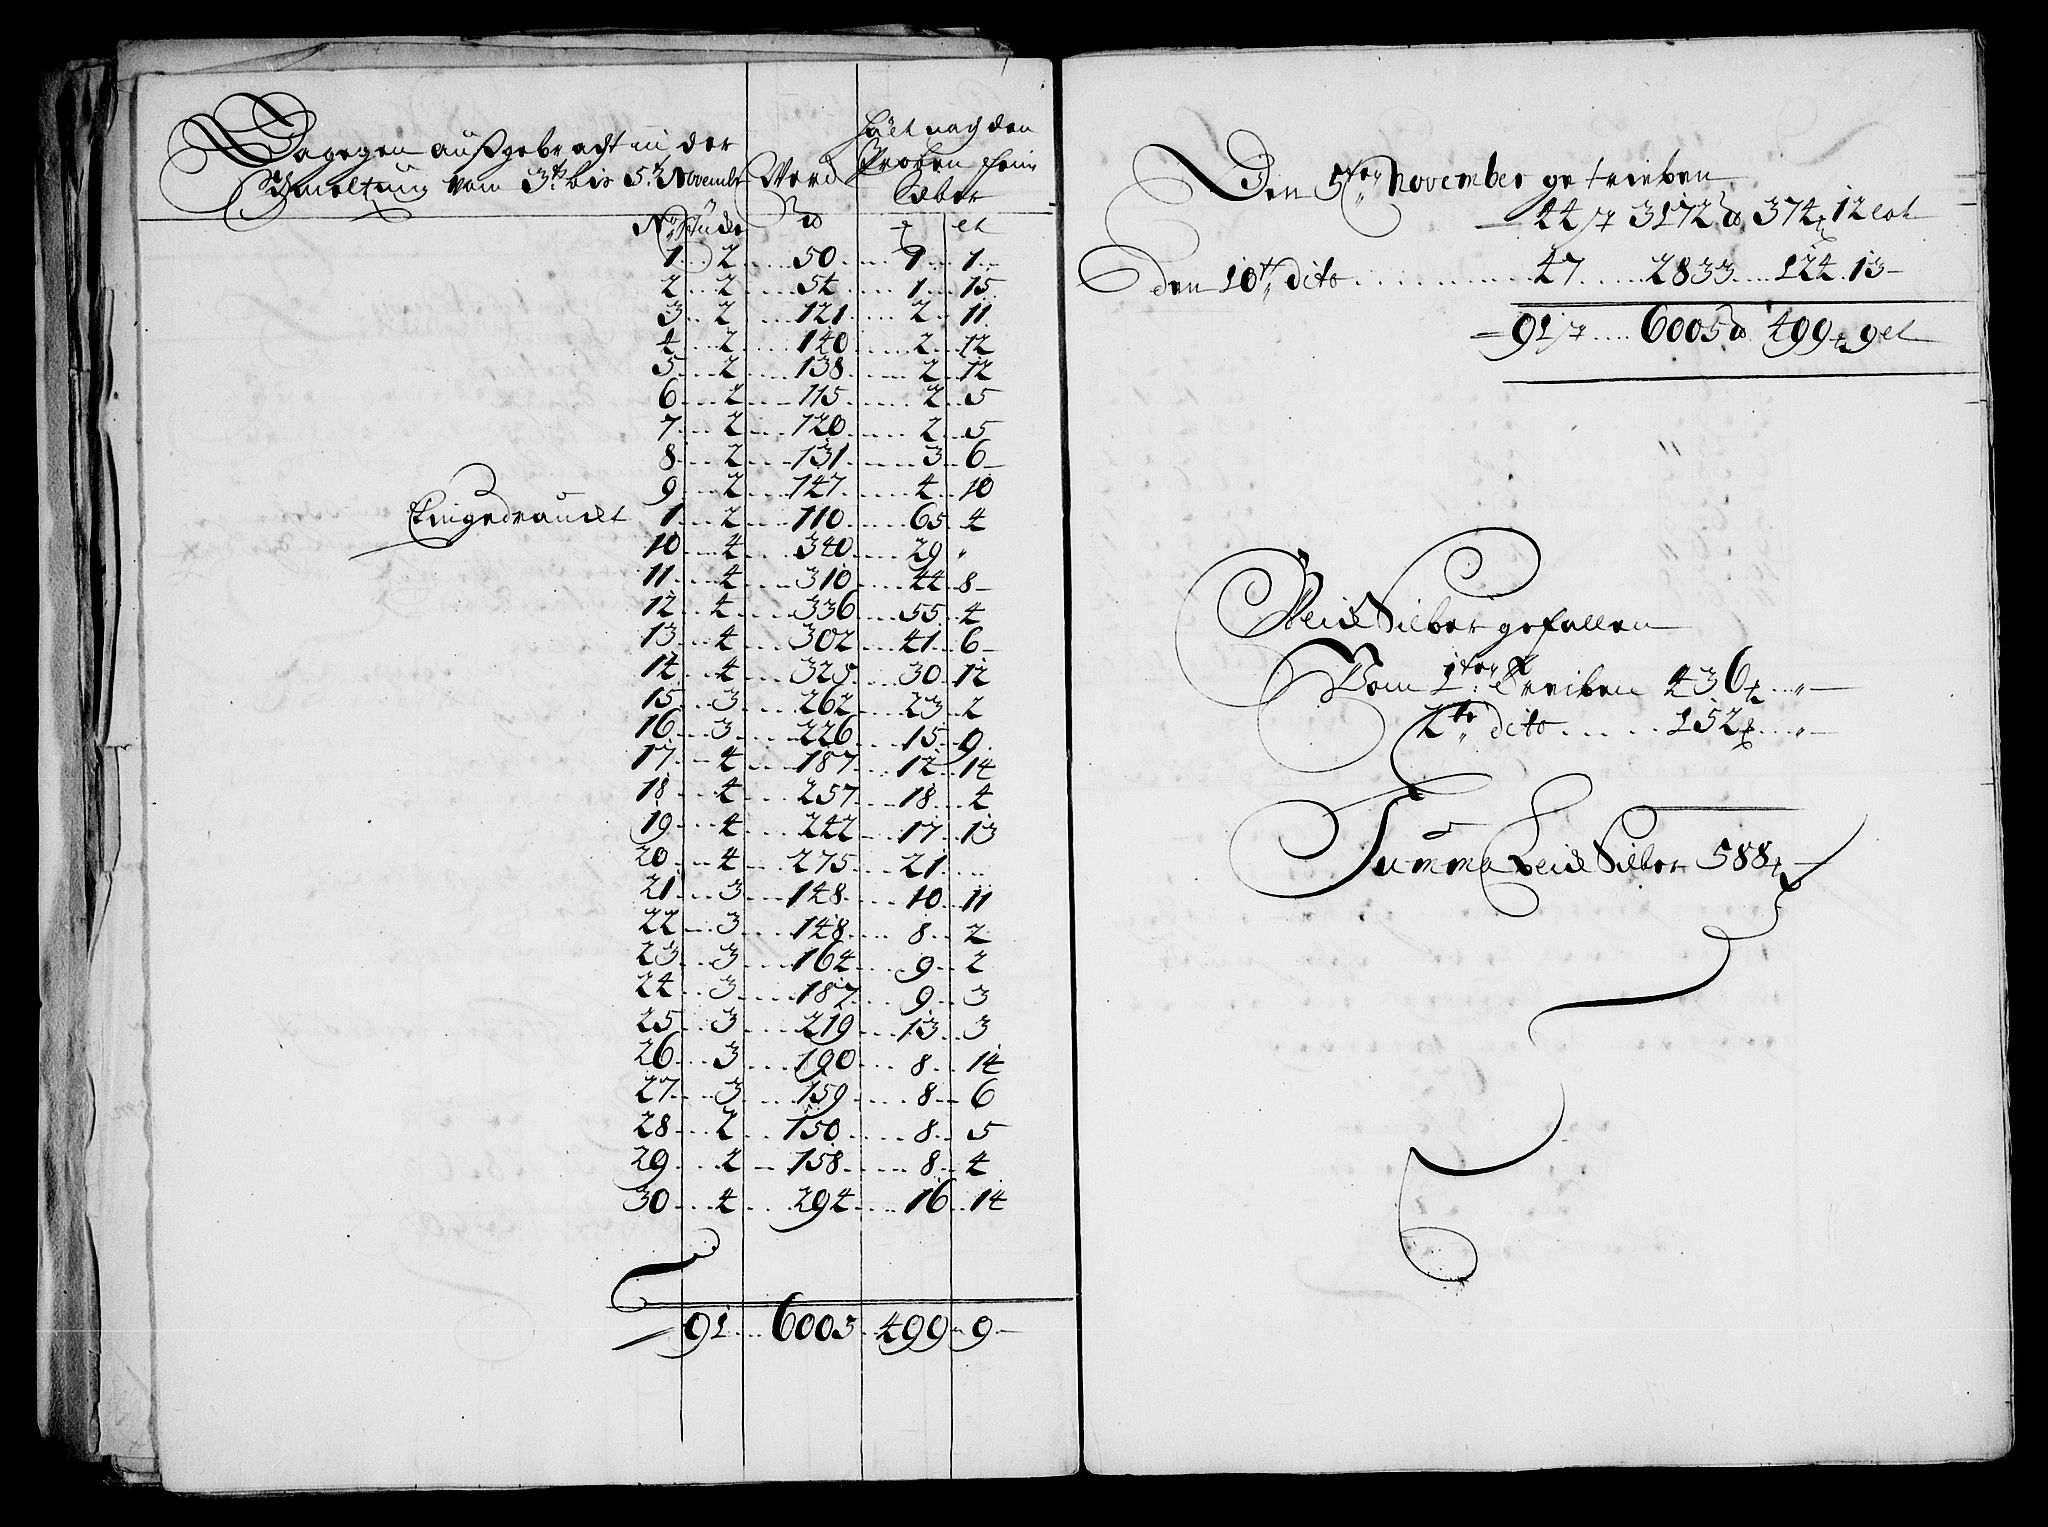 Dagegen außgebracht in der
Schmeltung vom 3ten bis 5t November
Werck
Hält nach den
Proben fein
Silber
No Stücke ℔ ℳ lt
1 2 50 1 1
2 2 54 1 15
3 2 121 2 11
4 2 140 2 12
5 2 138 2 12
6 2 115 2 5
7 2 120 2 5
8 2 131 3 6
9 2 147 4 10
Eingedränckt 1 2 110 65 4
10 4 340 29 "
11 4 310 44 8
12 4 336 55 4
13 4 302 41 6
14 4 325 30 12
15 3 262 23 2
16 3 226 15 9
17 4 187 12 14
18 4 257 18 4
19 4 242 17 13
20 4 275 21
21 3 148 10 11
22 3 148 8 2
23 3 164 9 2
24 3 187 9 3
25 3 219 13 3
26 3 190 8 14
27 3 159 8 6
28 2 150 8 5
29 2 158 8 4
30 4 294 16 14
91 6005 499 9
Den 5ten November getrieben
44 st 3172 ℔ 374 ℳ 12 lot
den 10t dito 47 2833 124 13
91 st 6005 ℔ 499 ℳ 9 lt
Blick Silber gefallen
Vom 1sten Treiben 436 ℳ "
2te dito 152 ℳ "
Summa Blick Silber 588 ℳ